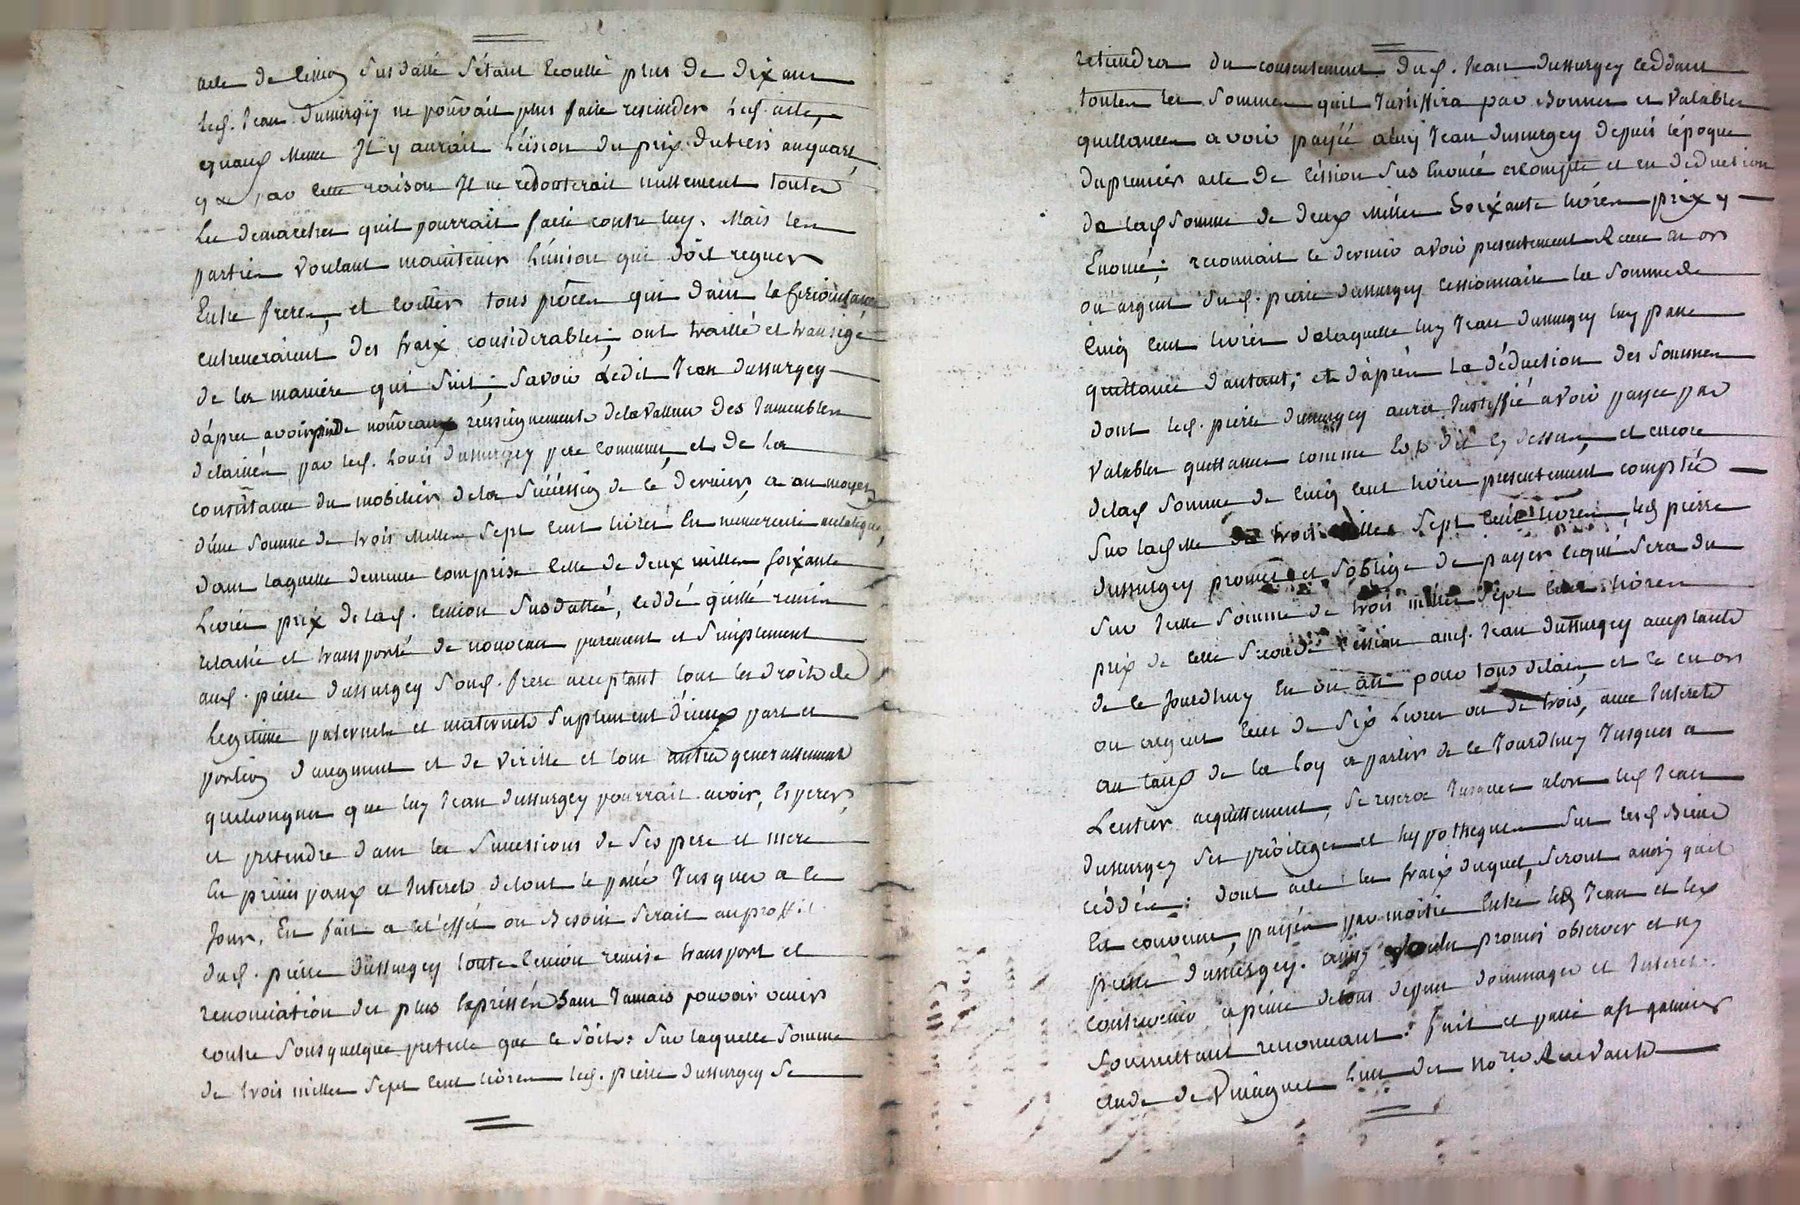 acte de cession susdatté s'étant Ecoullé plus de dix ans
led. Jean Dussurgey ne pouvait plus faire rescinder led. acte,
quand Meme Il y aurait Lésion du prix du tiers au quart,
que par cette raison Il ne redouterait nullement toutes
Les demarches quil pourrait faire contre luy. Mais les
parties voulant maintenir L'union qui doit regner
Entre freres, et Eviter tous procès qui dans la Circonstance
entreneraient des fraix considerables, ont traitté et transigé
de la maniere qui suit; savoir ledit Jean Dussurgey
d'apres avoir pris de nouveaux renseignements de la valleur des Immeubles
delaissés par led. Louis Dussurgey pere commun, et de la
consistance du mobilier de la succession de ce dernier, a au moyen
d'une somme de trois Milles sept cent livres En numeraire metalique,
dans laquelle demeure comprise celle de deux milles soixante
Livres prix de lad. cession susdattée, ceddé quitté remis
relaché et transporté de nouveau purement et simplement
aud. pierre Dussurgey son d. frere acceptant tous les droits de
Legitime paternels et maternels suplement d'iceux part et
portion d'augment et de virille et tous autres generallement
quelconques que luy Jean Dussurgey pourrait avoir, Esperer,
et pretendre dans les successions de ses pere et mere
En principaux et Interets de tout le passé Jusques a ce
Jour, En fait a cet effet ou Besoin serait au proffit
dud. pierre Dussurgey toute cession remise transport et
renonciation des plus Expresses sans Jamais pouvoir venir
contre sous quelque pretexte que ce soit: sur laquelle somme
de trois milles sept cent livres led. pierre Dussurgey se
retiendra du consentement dud. Jean Dussurgey ceddant
toutes les sommes quil Justiffira par Bonnes et Valables
quittances avoir payé a luy Jean Dussurgey depuis l'époque
du premier acte de cession sus Enoncé acompte et en deduction
de lad. somme de deux Milles Soixante livres prix y
Enoncé; reconnait ce dernier avoir presentement Receu en or
ou argent dud. pierre Dussurgey cessionnaire la somme de
cinq cent livres de laquelle luy Jean Dussurgey luy passe
quittance d'autant; et d'après la déduction des sommes
dont led. pierre Dussurgey aura Justiffié avoir payée par
Valables quittances comme Est dit cy dessus, et encore
de lad. somme de cinq cent livres presentement comptée
sur lad. somme de trois milles sept cent livres, led. pierre
Dussurgey promet et s'oblige de payer ce qui sera du
sur icelle somme de trois milles sept cent livres
prix de cette seconde cession aud. Jean Dussurgey acceptant
de ce Jourdhuy En un an pour tous delais, et ce en or
ou argent Ecus de six Livres ou de trois, avec Interets
au taux de la loy a partir de ce Jourdhuy Jusques a
Lentier acquittement, se reserve Jusques alors led. Jean
Dussurgey ses privileges et hypotheques sur lesd. Biens
ceddés: dont acte les fraix duquel, seront ainsy quil
Est convenu, payés par moitié Entre led. Jean et led.
pierre Dussurgey. ainsy voulu promis observer et ny
contrevenir a peine de tous depens dommages et Interets.
soumettant renonceant: fait et passé a st genis
Etude de l'un des no.res Recevants